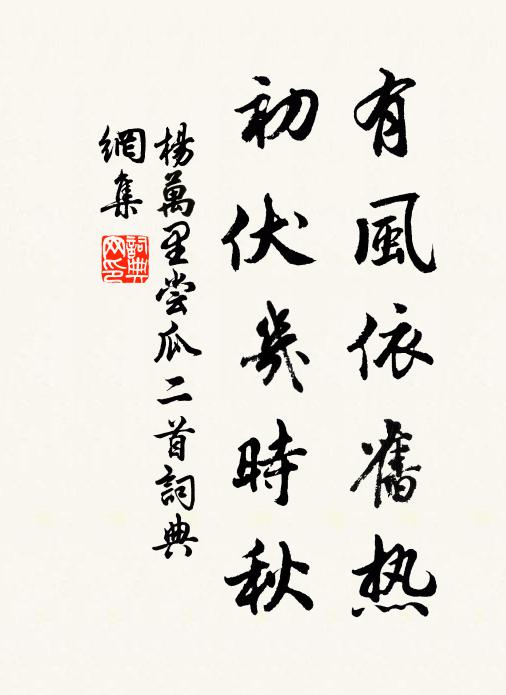 有風依舊热
初伏幾時秋
楊萬里嘗瓜二首詞典
網集
詞典网印